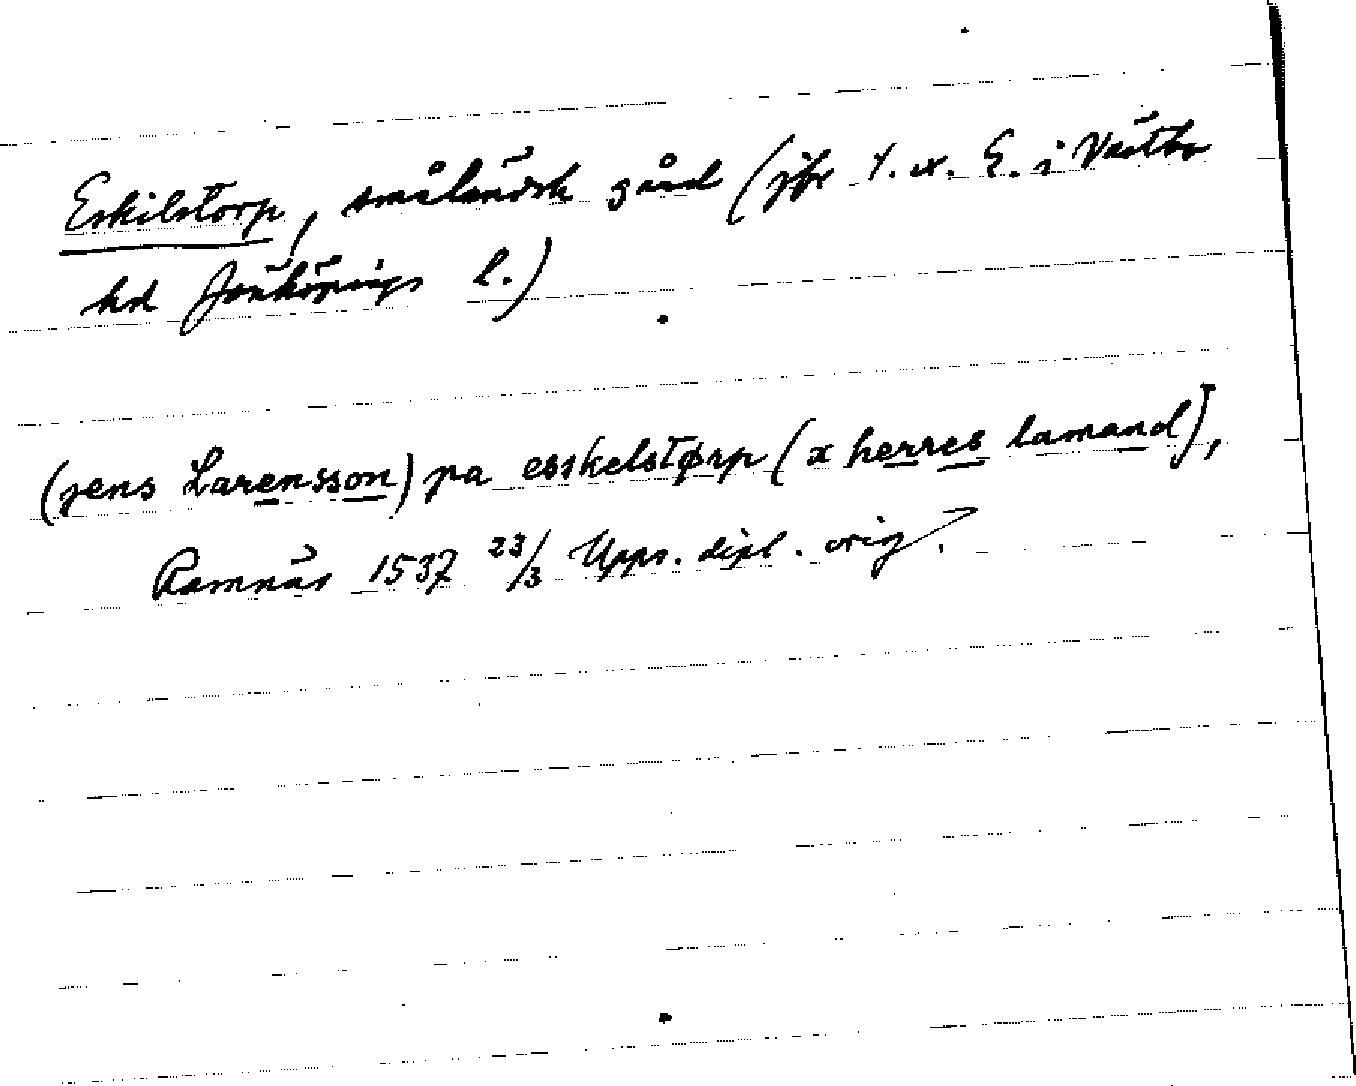 Eskilstorp, småländsk gård (jfr t. ex. E. i Västbo
hd Jönköpings l.)
(jens Larensson) pa esskelstørp (x herres lamand),
Ramnäs 1537 23/3 Upps. dipl. orig.